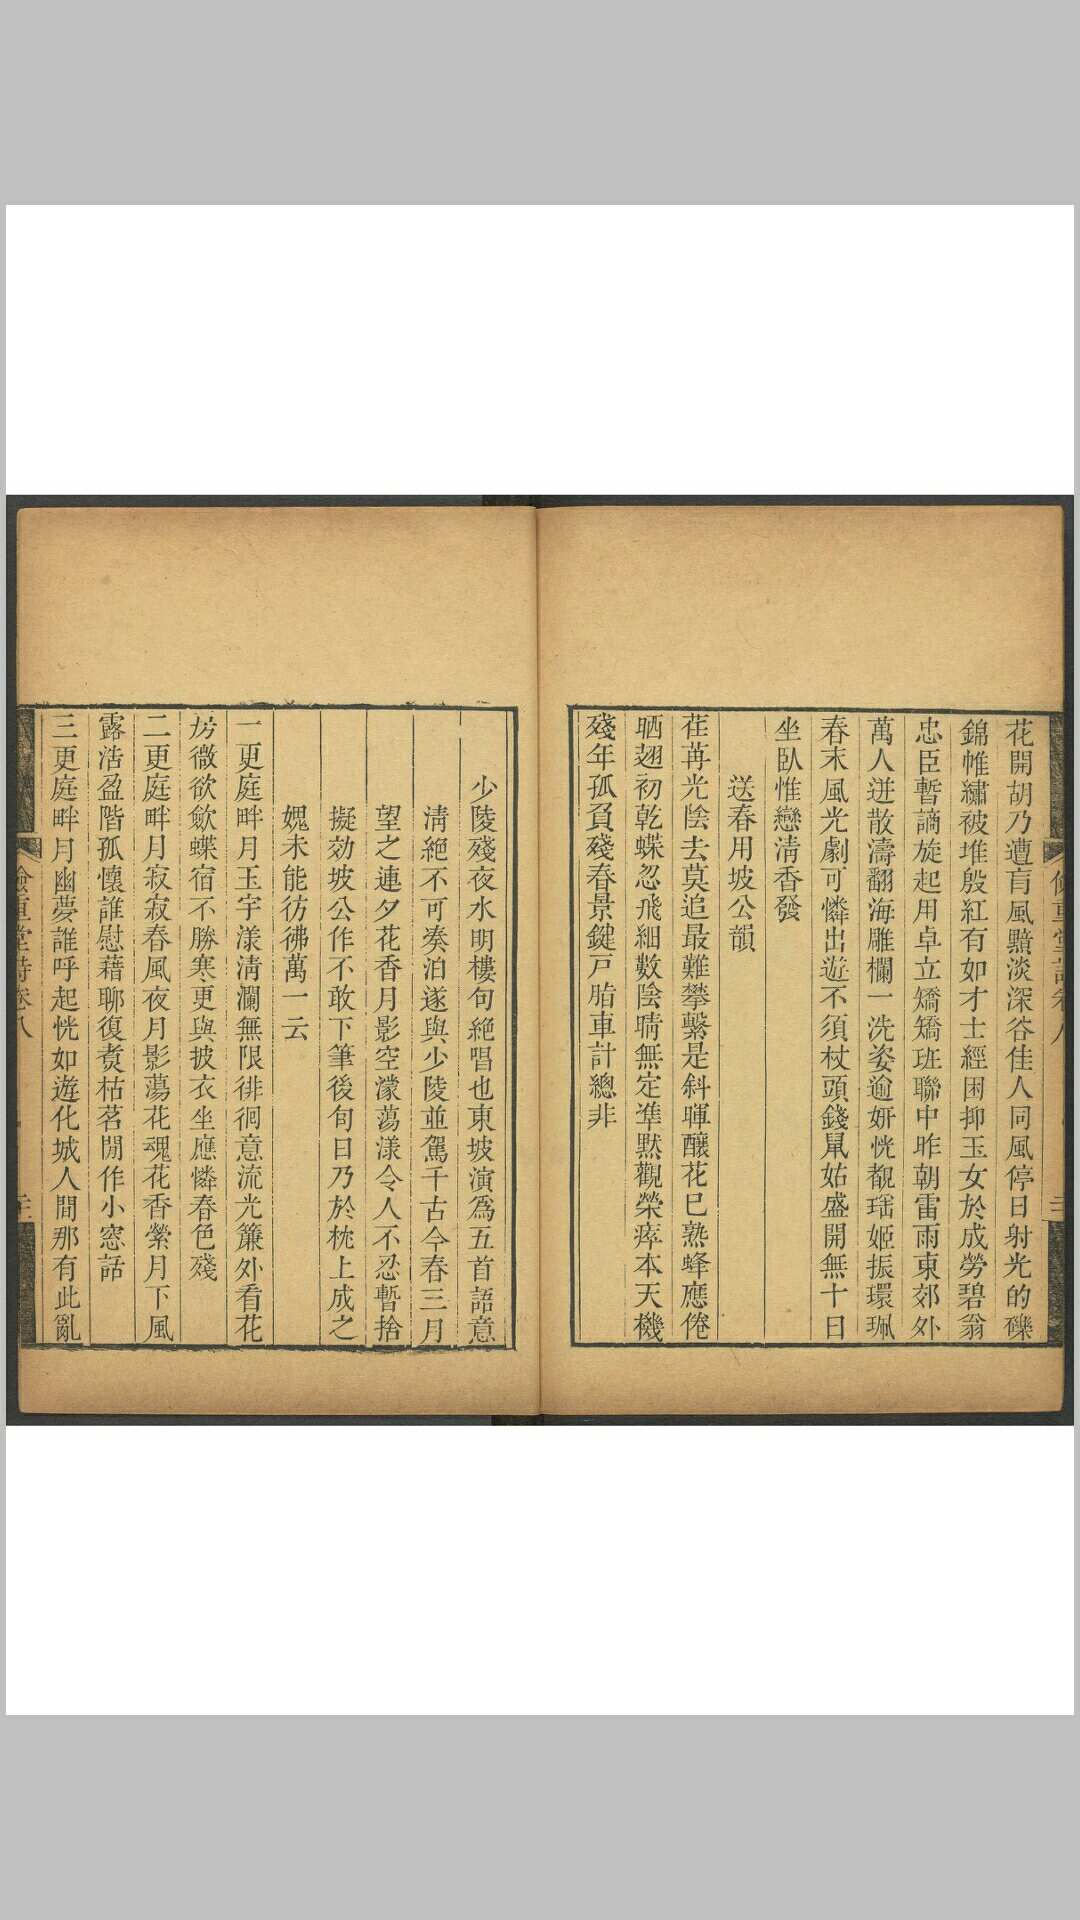 花開胡乃遭盲風黯淡深谷佳人同風停日射光的礫
錦帷繡被堆殷紅有如才士經困抑玉女於成勞碧翁
忠臣暫謫旋起用卓立矯矯班聯中昨朝雷雨東郊外
萬人迸散濤翻海雕欄一洗姿逾妍恍覩瑤姬振環珮
春末風光劇可憐出遊不須杖頭錢鼠姑盛開無十日
坐臥惟戀清香發
送春用坡公韻
荏苒光陰去莫追最難攀繫是斜暉釀花巳熟蜂應倦
晒翅初乾蝶忽飛細數陰晴無定準默觀榮瘁本天機
殘年孤負殘春景鍵戸脂車計總非
少陵殘夜水明樓句絕唱也東坡演爲五首語意
清絕不可湊泊遂與少陵並駕千古今春三月
望之連夕花香月影空濛蕩漾令人不忍暫捨
擬効坡公作不敢下筆後旬日乃於枕上成之
媿未能彷彿萬一云
一更庭畔月玉宇漾清瀾無限徘徊意流光簾外看花
房微欲歛蝶宿不勝寒更與披衣坐應憐春色殘
二更庭畔月寂寂春風夜月影蕩花魂花香縈月下風
露浩盈階孤懷誰慰藉聊復煑枯茗閒作小窓話
三更庭畔月幽夢誰呼起恍如遊化城人間那有此亂
堂詩卷八